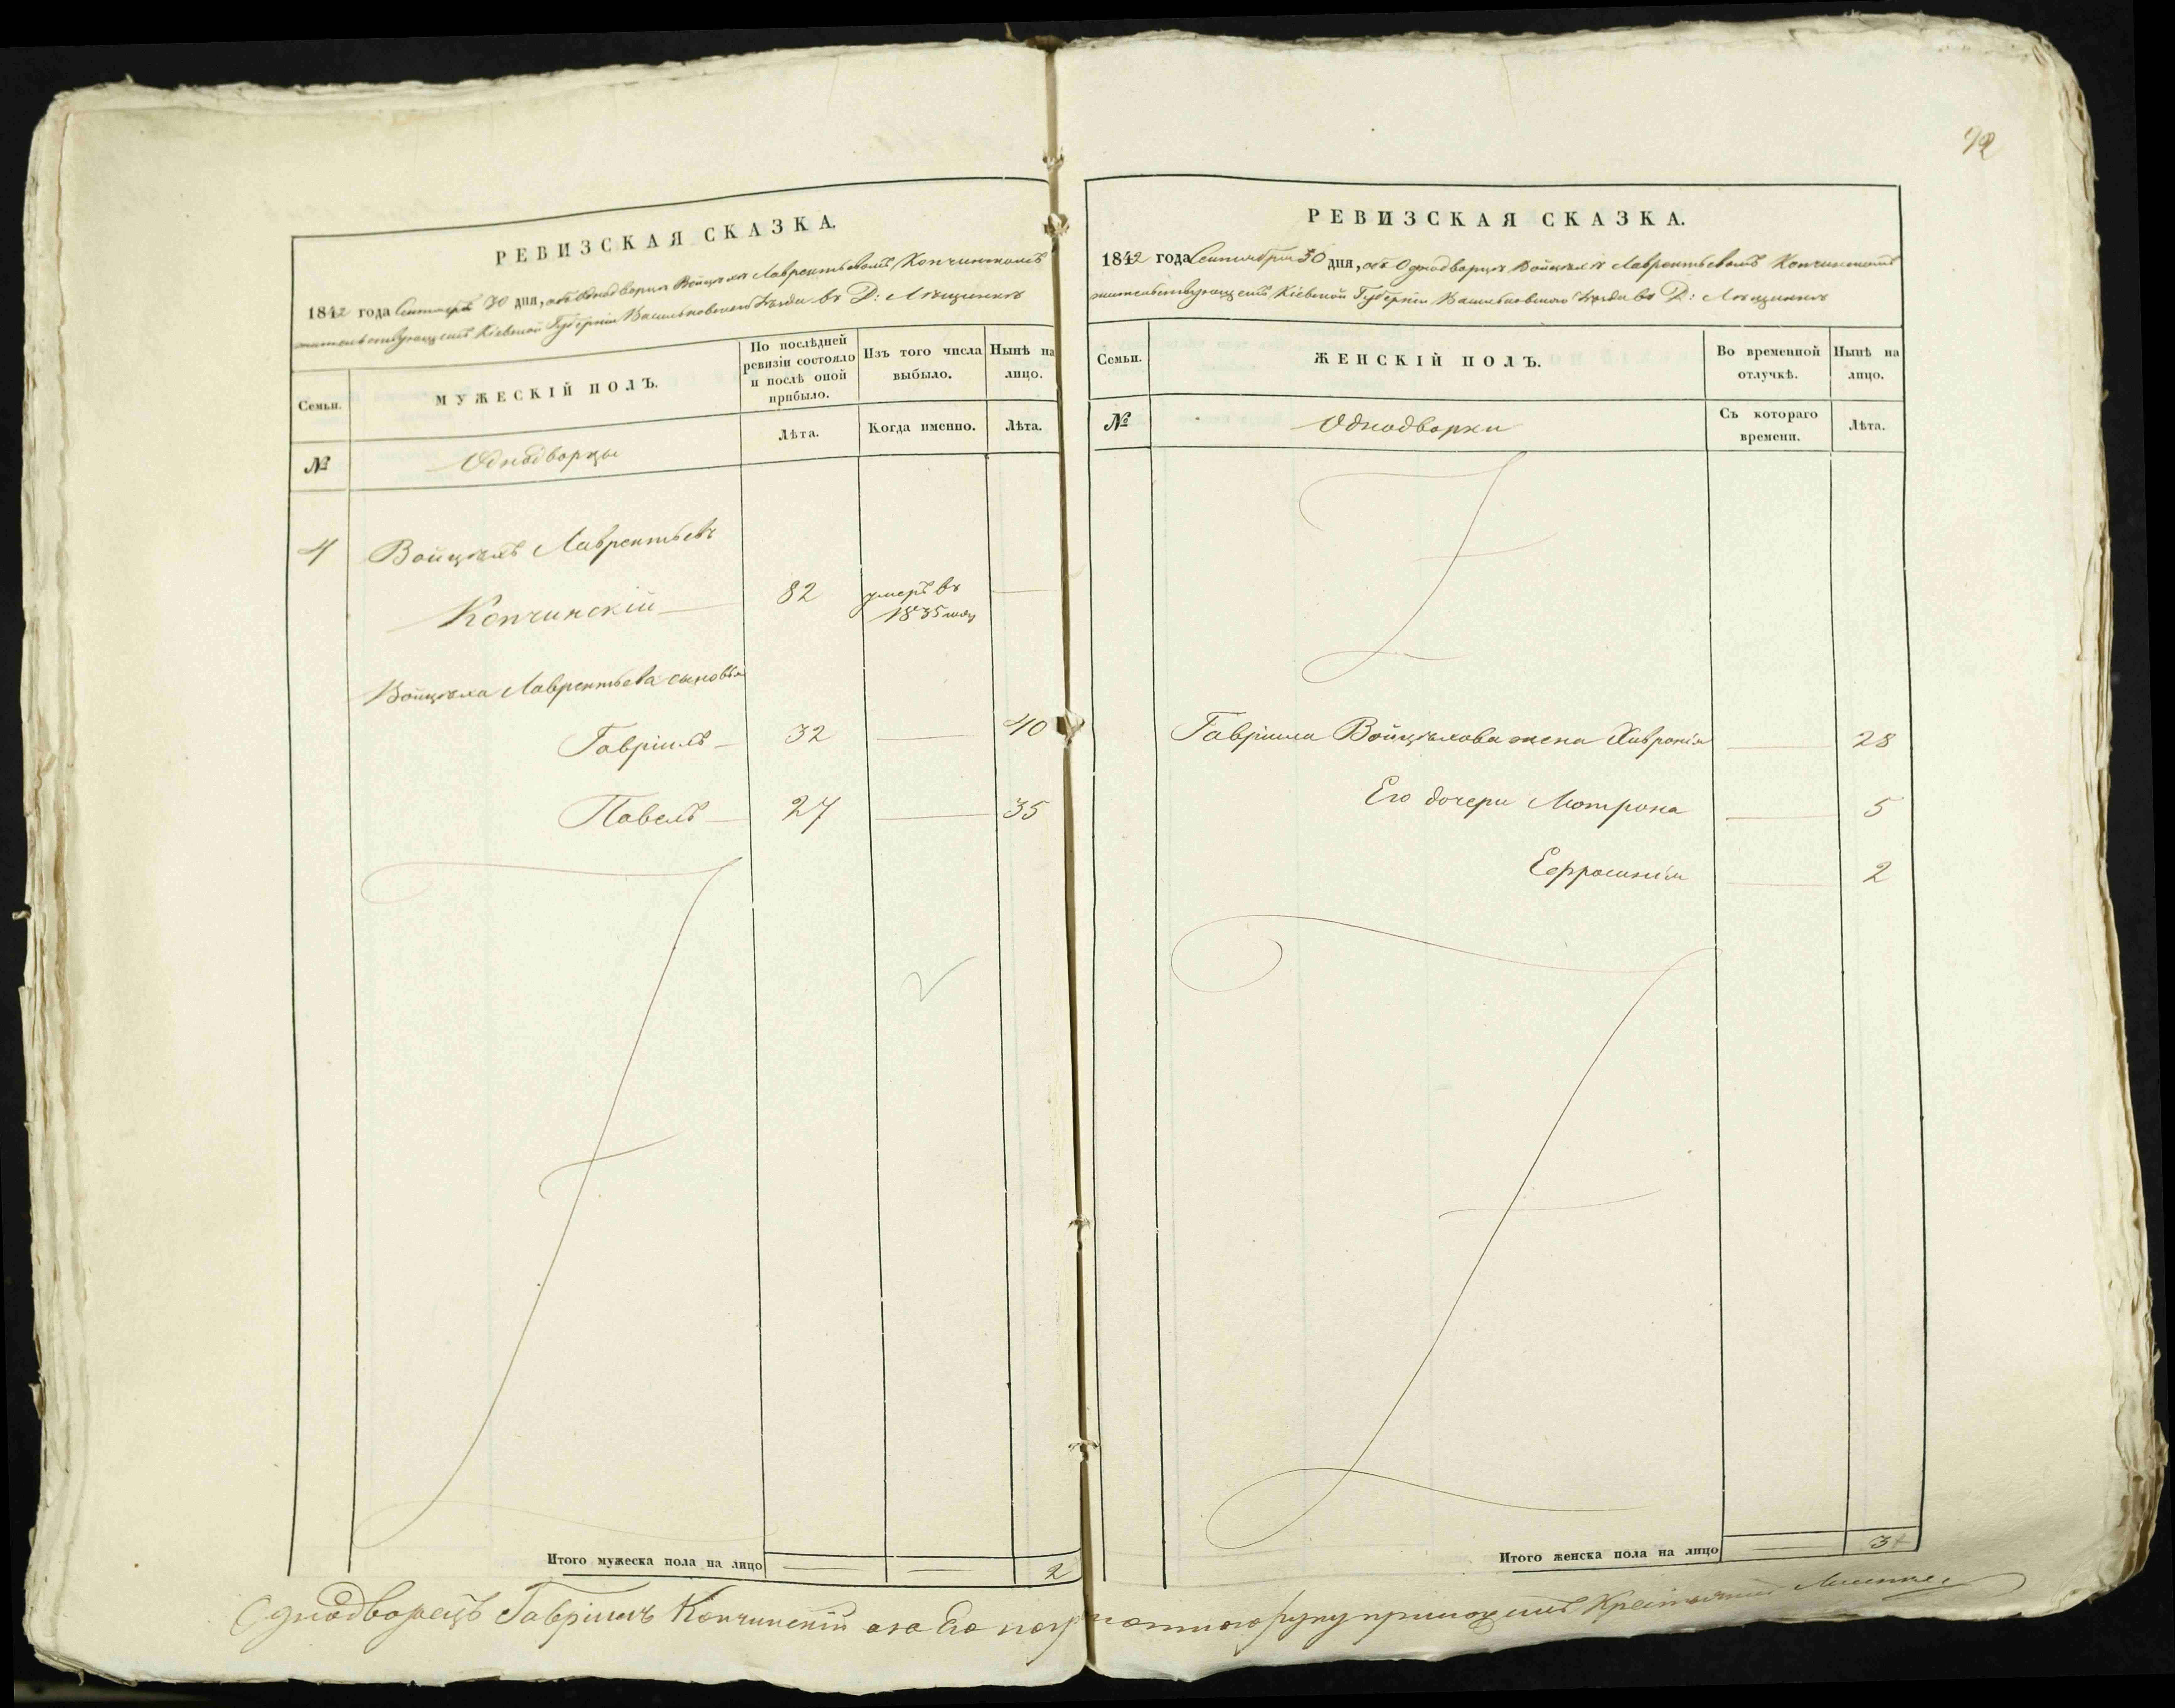 92
РЕВИЗСКАЯ СКАЗКА.
1842 года Сентября 30 дня, объ Однодворцѣ Войцѣхѣ Лаврентьевомъ Копчинскомъ
жительствующемъ Кіевской Губерніи Васильковскаго Уѣзда въ Д:
Семьи.
МУЖЕСКІЙ ПОЛЪ.
По послѣдней
ревизіи состояло
и послѣ оной
прибыло.
Изъ того числа
выбыло.
Нынѣ на
лицо.
№
Однодворцы
Лѣта.
Когда именно.
Лѣта.
4 Войцѣхъ Лаврентьевъ
Копчинскій 82 умеръ въ
1835 году
Войцѣха Лаврентьева сыновья
Гавріилъ 32 40
Павелъ 27 35
Итого мужеска пола на лицо 2
РЕВИЗСКАЯ СКАЗКА.
1842 года Сентября 30 дня, объ Однодворцѣ Войцѣхѣ Лаврентьевомъ Копчинскомъ
жительствующемъ Кіевской Губерніи Васильковскаго Уѣзда въ Д:
Семьи.
ЖЕНСКІЙ ПОЛЪ.
Во временной
отлучкѣ.
Нынѣ на
лицо.
№
Однодворки
Съ котораго
времени.
Лѣта.
Гавріила Войцѣхова жена Хивронія 28
Его дочери Мотрона 5
Ефросинія 2
Итого женска пола на лицо 3
Однодворецъ Гавріилъ Копчинскій а за Его руку приложилъ